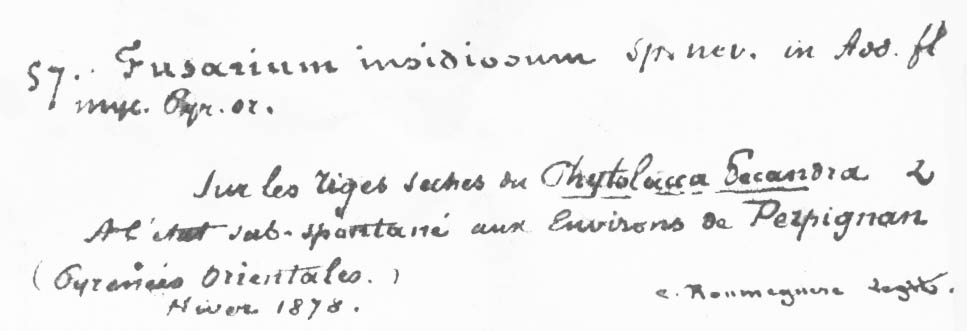 57. Fusarium insidiosum sp. nov. in Add. fl
myc. Pyr. or.
Sur les tiges seches du Phytolacca Decandra 2
A l'état sub-spontané aux Environs de Perpignan
(Pyrenées Orientales.)
Hiver 1878. C. Roumeguere legit.